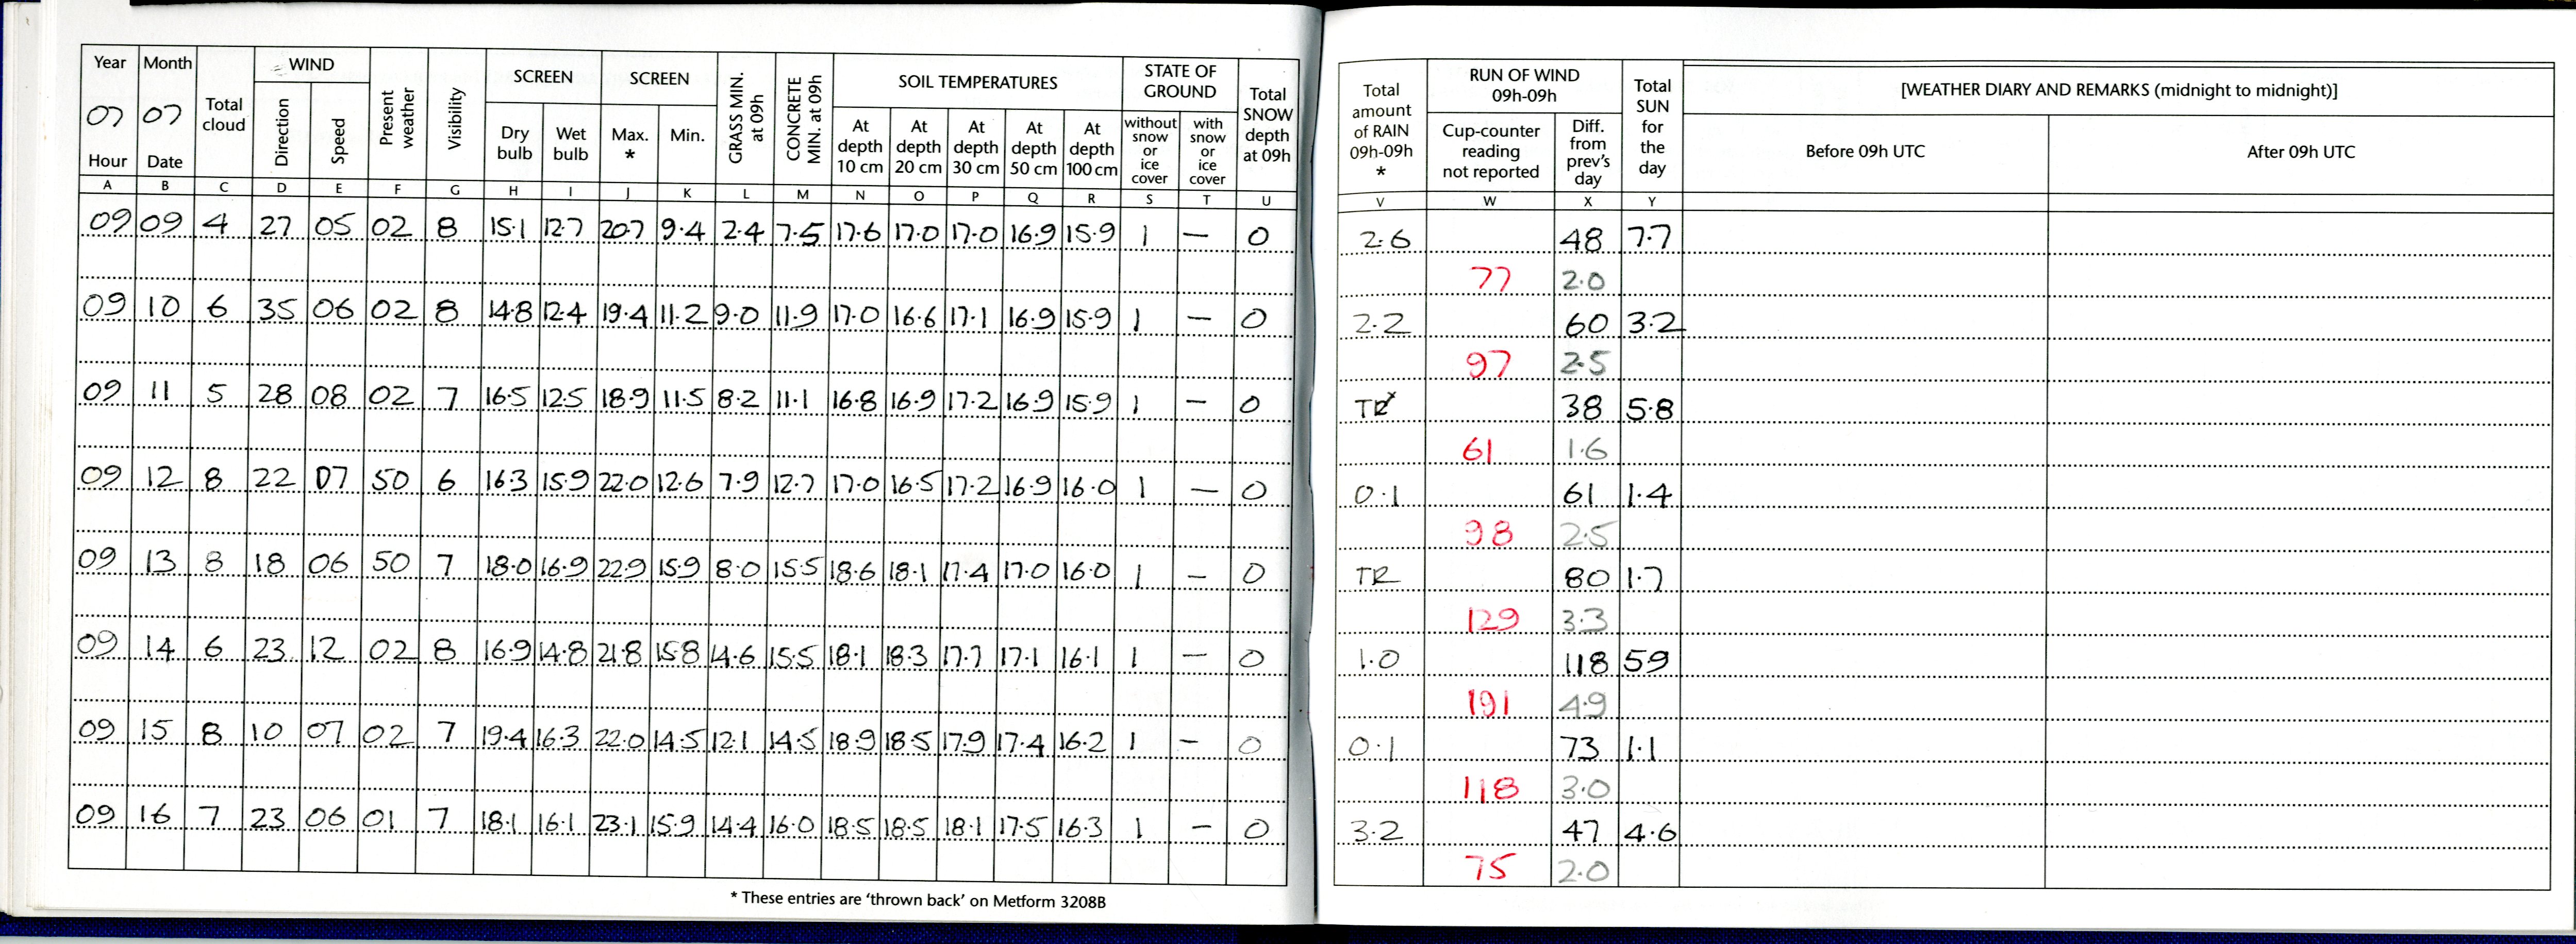 Year Month Total cloud WIND Present weather Visibility SCREEN SCREEN GRASS MIN. at 09h CONCRETE MIN. at 09h SOIL TEMPERATURES STATE OF GROUND Total SNOW depth at 09h
07 07 Direction Speed Dry bulb Wet bulb Max. * Min. At depth 10 cm At depth 20 cm At depth 30 cm At depth 50 cm At depth 100 cm without snow or ice cover with snow or ice cover
Hour Date
A B C D E F G H I J K L M N O P Q R S T U
09 09 4 27 05 02 8 15.1 12.7 20.7 9.4 2.4 7.5 17.6 17.0 17.0 16.9 15.9 1 — 0
09 10 6 35 06 02 8 14.8 12.4 19.4 11.2 9.0 11.9 17.0 16.6 17.1 16.9 15.9 1 — 0
09 11 5 28 08 02 7 16.5 12.5 18.9 11.5 8.2 11.1 16.8 16.9 17.2 16.9 15.9 1 — 0
09 12 8 22 07 50 6 16.3 15.9 22.0 12.6 7.9 12.7 17.0 16.5 17.2 16.9 16.0 1 — 0
09 13 8 18 06 50 7 18.0 16.9 22.9 15.9 8.0 15.5 18.6 18.1 17.4 17.0 16.0 1 — 0
09 14 6 23 12 02 8 16.9 14.8 21.8 15.8 14.6 15.5 18.1 18.3 17.7 17.1 16.1 1 — 0
09 15 8 10 07 02 7 19.4 16.3 22.0 14.5 12.1 14.5 18.9 18.5 17.9 17.4 16.2 1 — 0
09 16 7 23 06 01 7 18.1 16.1 23.1 15.9 14.4 16.0 18.5 18.5 18.1 17.5 16.3 1 — 0
* These entries are ‘thrown back’ on Metform 3208B
Total amount of RAIN 09h-09h * RUN OF WIND 09h-09h Total SUN for the day [WEATHER DIARY AND REMARKS (midnight to midnight)]
Cup-counter reading not reported Diff. from prev's day Before 09h UTC After 09h UTC
V W X Y
2.6 48 7.7
77 2.0
2.2 60 3.2
97 2.5
TR* 38 5.8
61 1.6
0.1 61 1.4
98 2.5
TR 80 1.7
129 3.3
1.0 118 59
191 4.9
0.1 73 1.1
118 3.0
3.2 47 4.6
75 2.0